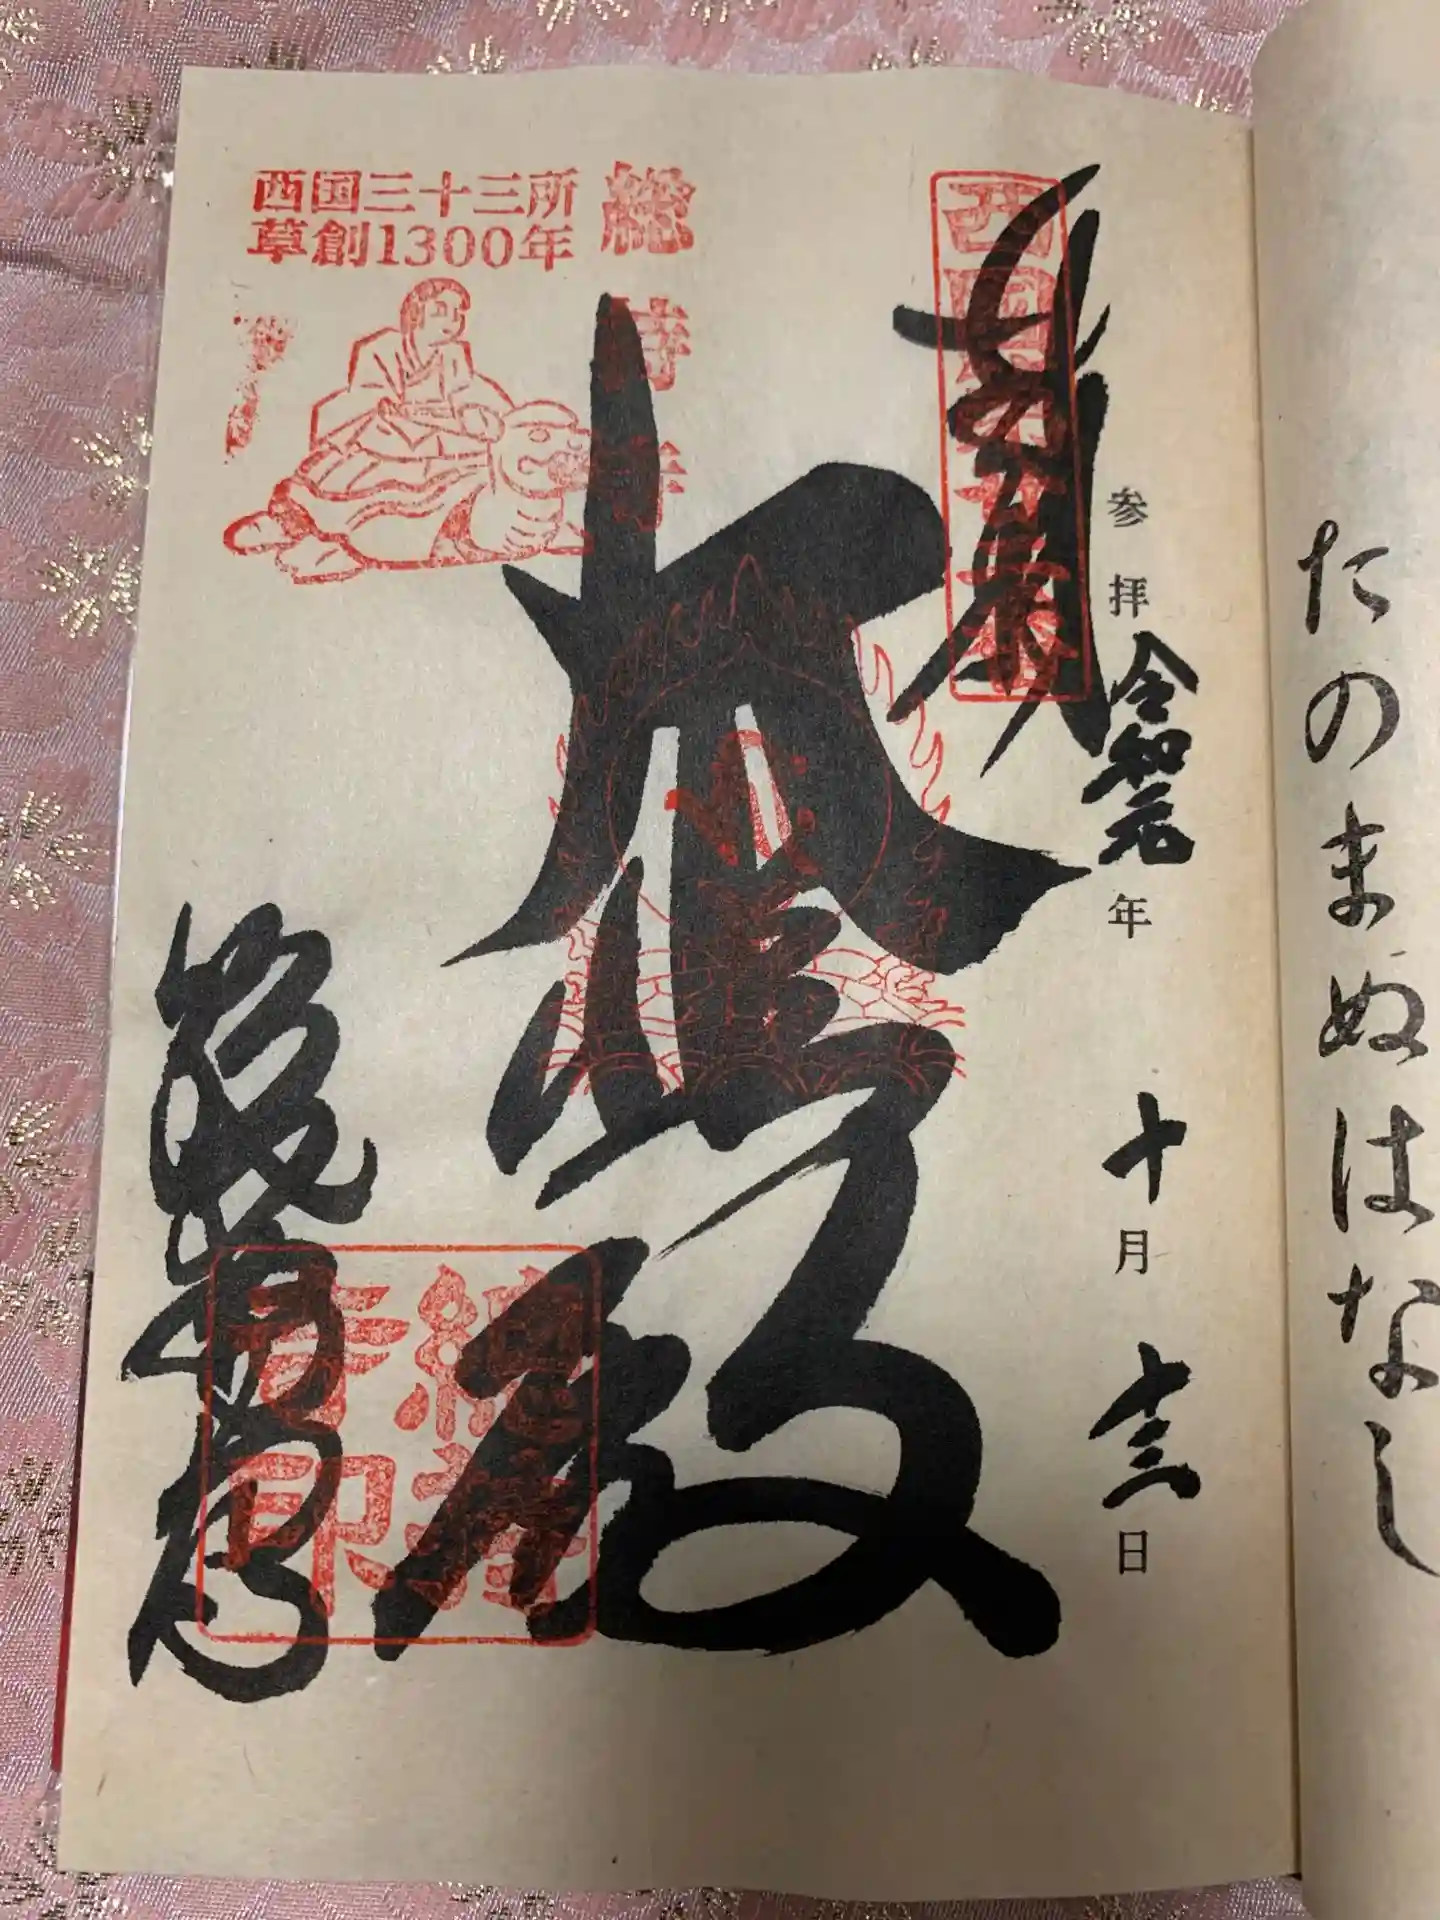 たのまぬはなし
西国
奉拝
参拝令和元年十月十三日
大悲殿
総持寺
西国三十三所
草創1300年
総持寺
総持寺印